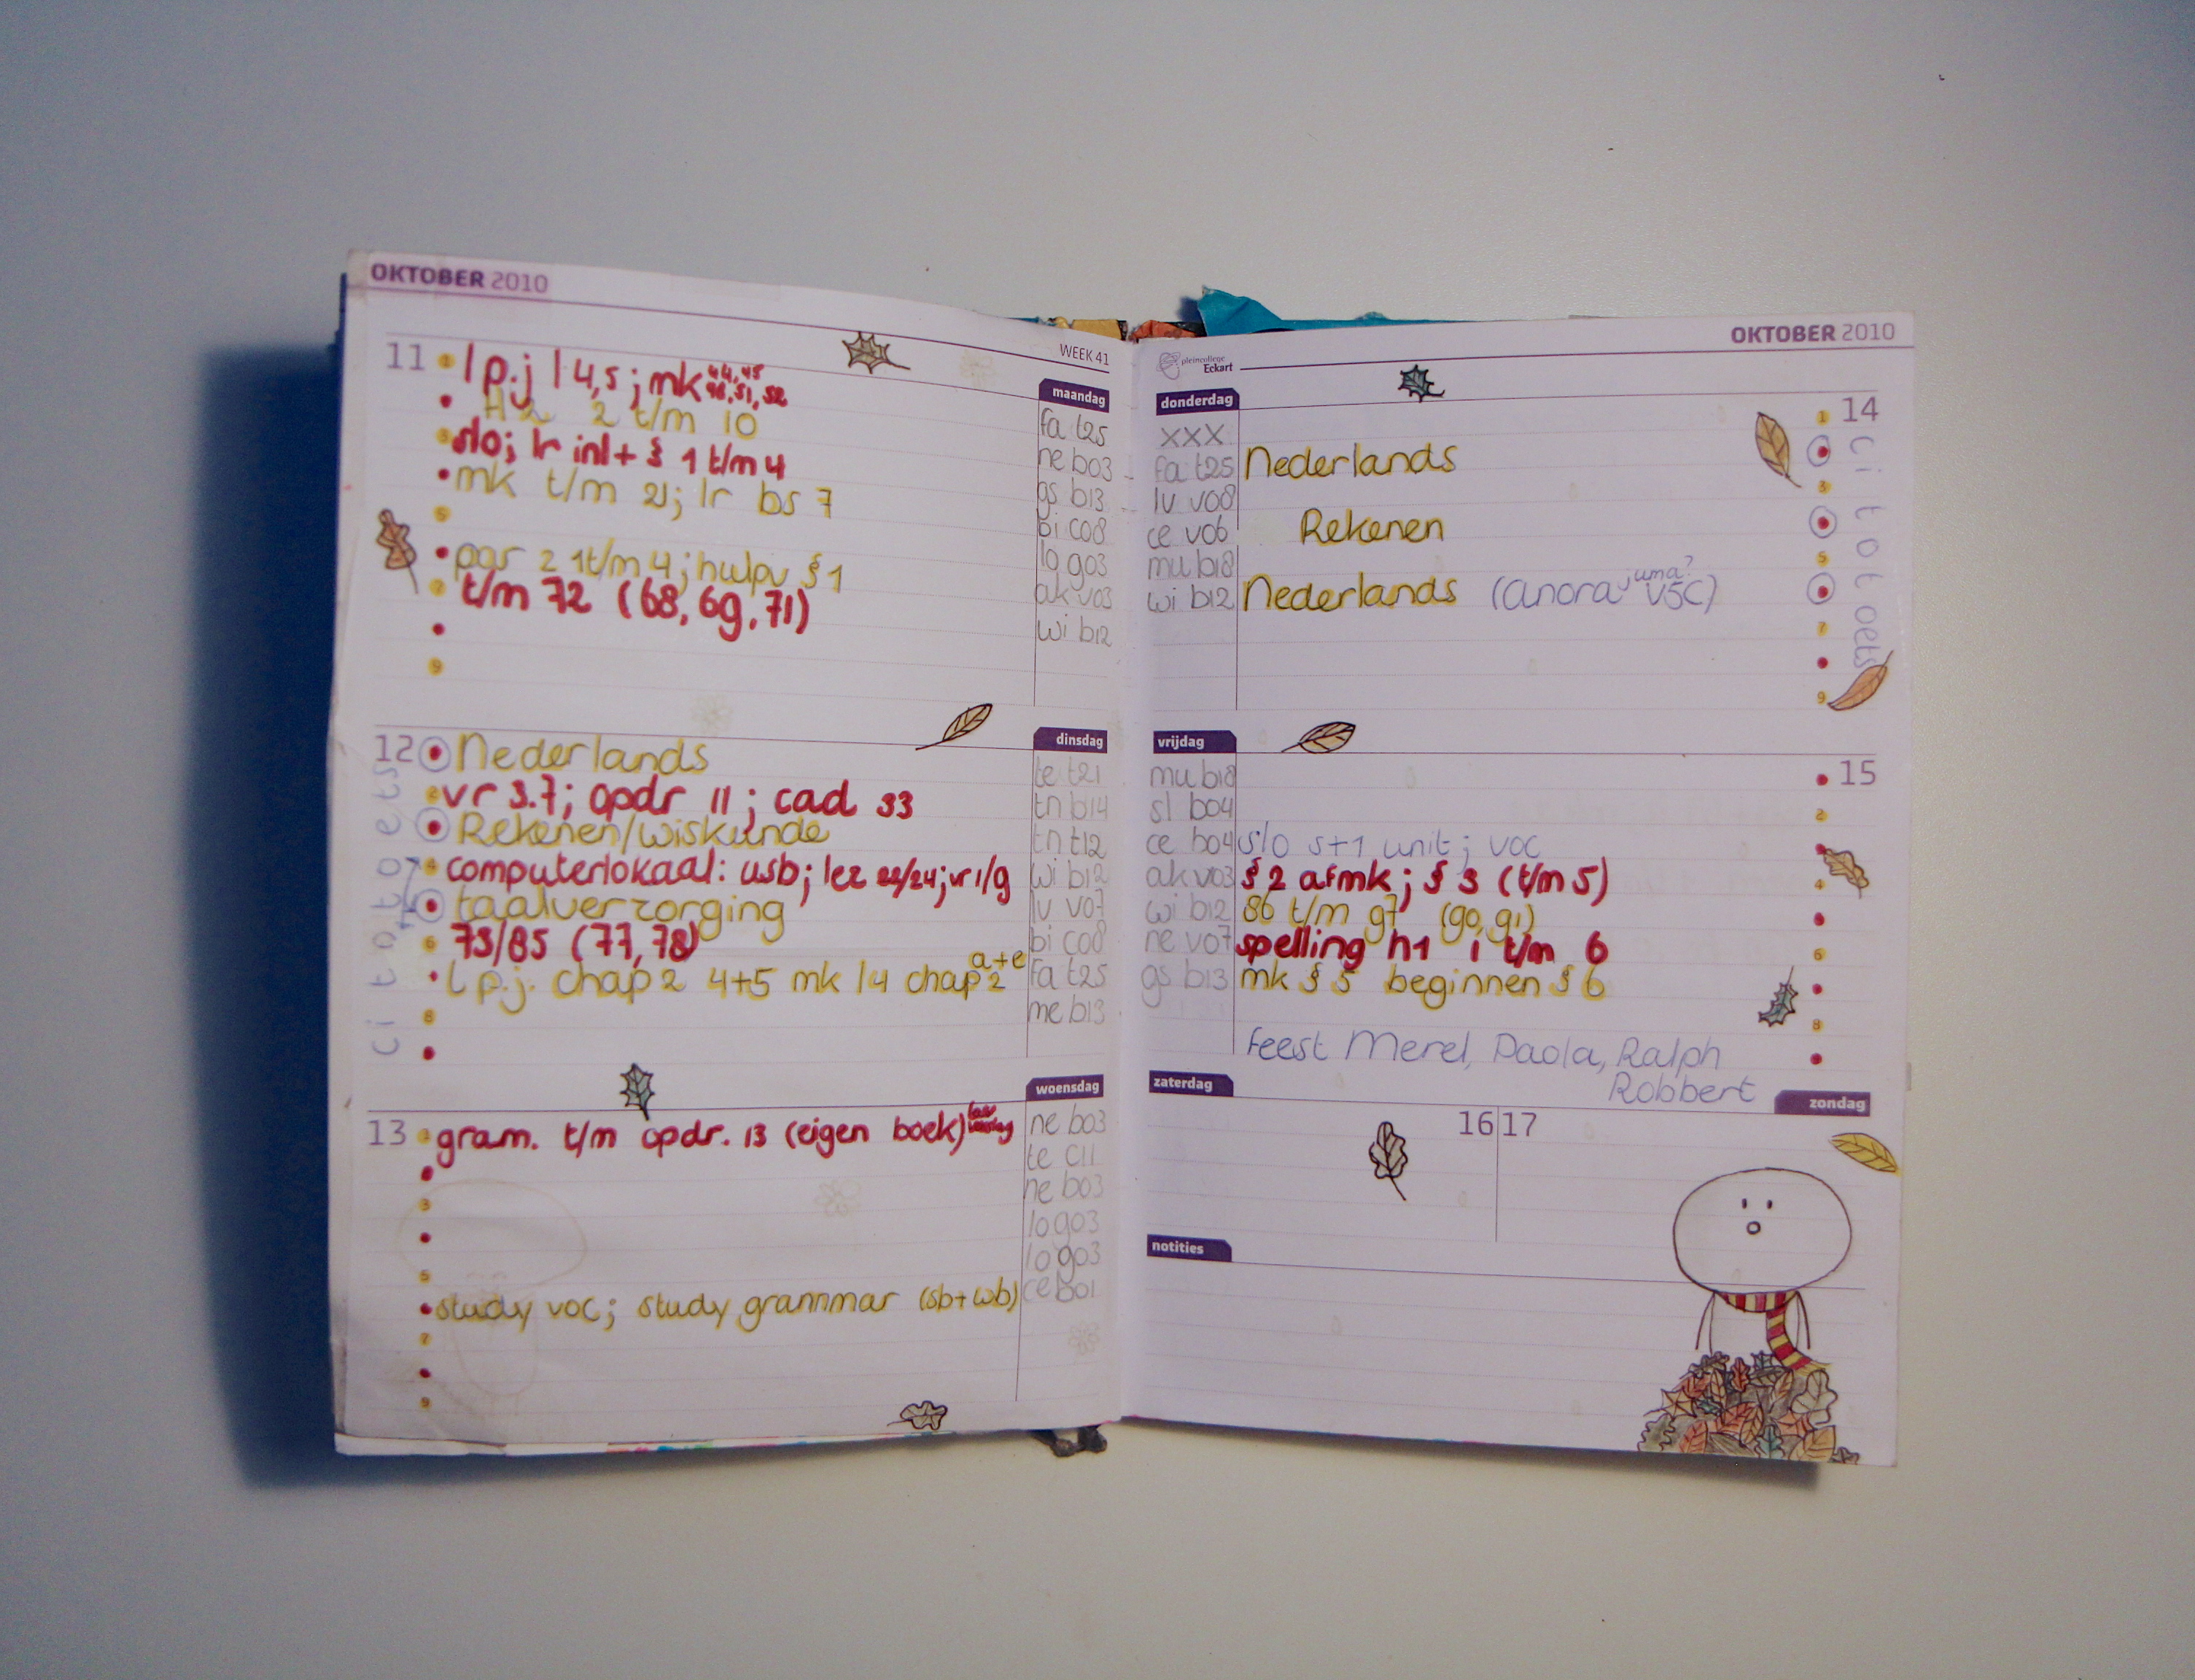 OKTOBER 2010
WEEK 41
11
maandag
1 l p.j l 4,5 ; mk 44, 45
46, 51, 52
H 2 2 t/m 10
fa t25
3 slo; lr inl + § 1 t/m 4
ne b03
mk t/m 21; lr bs 7
gs b13
5
bi c08
par 2 1 t/m 4; hulpv § 1
lo g03
7 t/m 72 (68, 69, 71)
ak v03
wi b12
9
12
dinsdag
citotoets
Nederlands
te t21
2 vr 3.7; opdr 11; cad 33
tn b14
Rekenen/wiskunde
tn t12
4 computerlokaal: usb; lez 22/24; vr 1/9
wi b12
taalverzorging
lv v07
6 73/85 (77, 78)
bi c08
l p.j. chap 2 4+5 mk 14 chap 2 a+e
fa t25
8
me b13
woensdag
13
1 gram. t/m opdr. 13 (eigen boek)
ne b03
te c11
3
ne b03
lo g03
5
lo g03
study voc; study grammar (sb+wb)
ce b01
7
9
pleincollege
Eckart
OKTOBER 2010
donderdag
14
citotoets
xxx
1
fa t25 Nederlands
lv v08
3
ce v06 Rekenen
mu b18
5
wi b12 Nederlands (anora, uma? V5C)
7
9
vrijdag
15
mu b18
sl b04
2
ce b04 slo s+1 unit; voc
ak v03 § 2 afmk; § 3 (t/m 5)
4
wi b12 86 t/m 97 (90, 91)
ne v07 spelling h1 1 t/m 6
6
gs b13 mk § 5 beginnen § 6
8
feest Merel, Paola, Ralph
Robbert
zaterdag
zondag
16 17
notities